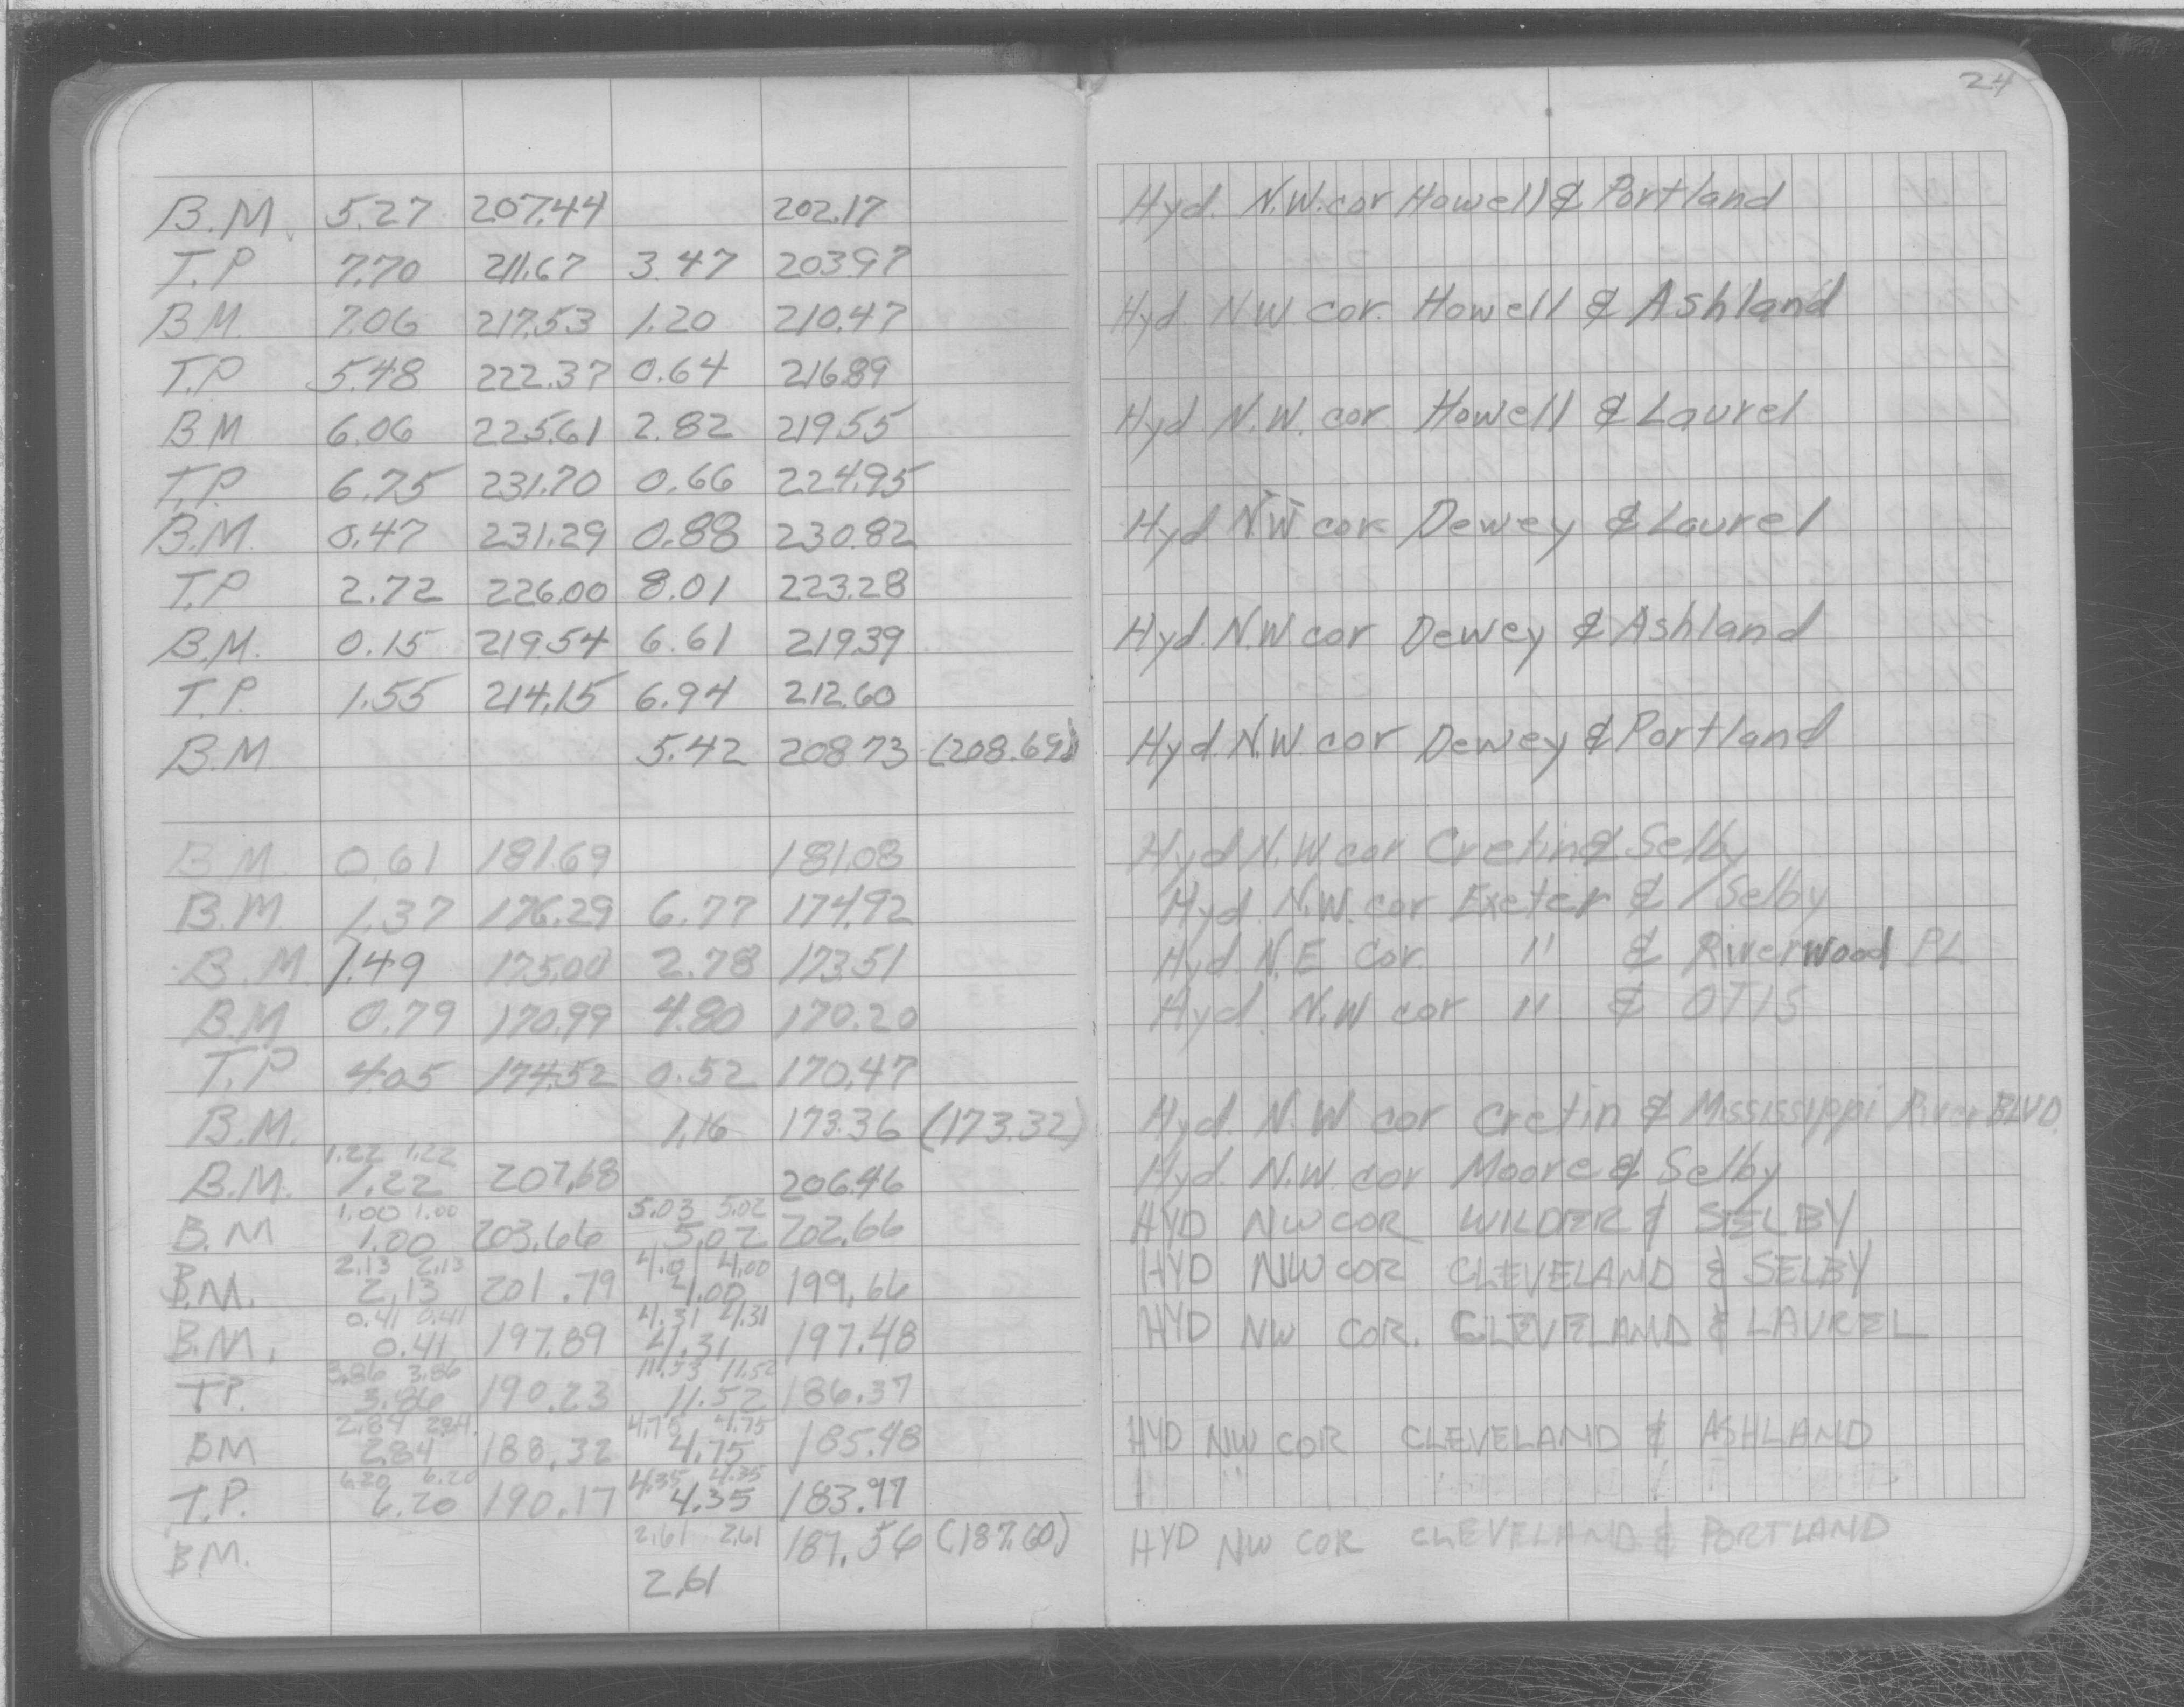 24
B.M. 5.27 207.44 202.17 Hyd. N.W. cor Howell & Portland
T.P 7.70 211.67 3.47 203.97
B.M. 7.06 217.53 1.20 210.47 Hyd. N.W. cor. Howell & Ashland
T.P 5.48 222.37 0.64 216.89
B.M 6.06 225.61 2.82 219.55 Hyd. N.W. cor. Howell & Laurel
T.P. 6.75 231.70 0.66 224.95
B.M. 0.47 231.29 0.88 230.82 Hyd N.W. cor. Dewey & Laurel
T.P 2.72 226.00 8.01 223.28
B.M. 0.15 219.54 6.61 219.39 Hyd. N.W. cor Dewey & Ashland
T.P. 1.55 214.15 6.94 212.60
B.M 5.42 208.73 (208.69) Hyd. N.W. cor Dewey & Portland
B.M. 0.61 181.69 181.08 Hyd N.W cor Cretin & Selby
B.M. 1.37 176.29 6.77 174.92 Hyd. N.W. cor Exeter & Selby
B.M. 1.49 175.00 2.78 173.51 Hyd. N.E Cor. " & Riverwood PL
B.M 0.79 170.99 4.80 170.20 Hyd. N.W cor " & OTIS
T.P 4.05 174.52 0.52 170.47
B.M. 1.16 173.36 (173.32) Hyd. N.W cor Cretin & Mississippi River BLVD.
1.22 1.22
B.M. 1.22 207.68 206.46 Hyd. N.W. cor Moore & Selby
1.00 1.00 5.03 5.02
B.M 1.00 203.66 5.02 202.66 HYD NW COR WILDER & SELBY
2.13 2.13 4.01 4.00
B.M. 2.13 201.79 4.00 199.66 HYD NW COR CLEVELAND & SELBY
0.41 0.41 4.31 4.31
B.M. 0.41 197.89 4.31 197.48 HYD NW COR. CLEVELAND & LAUREL
3.86 3.86 11.53 11.52
T.P. 3.86 190.23 11.52 186.37
2.84 2.84 4.75 4.75
BM 2.84 188.32 4.75 185.48 HYD NW COR CLEVELAND & ASHLAND
6.20 6.20 4.35 4.35
T.P. 6.20 190.17 4.35 183.97
2.61 2.61
B.M. 187.56 (187.60) HYD NW COR CLEVELAND & PORTLAND
2.61